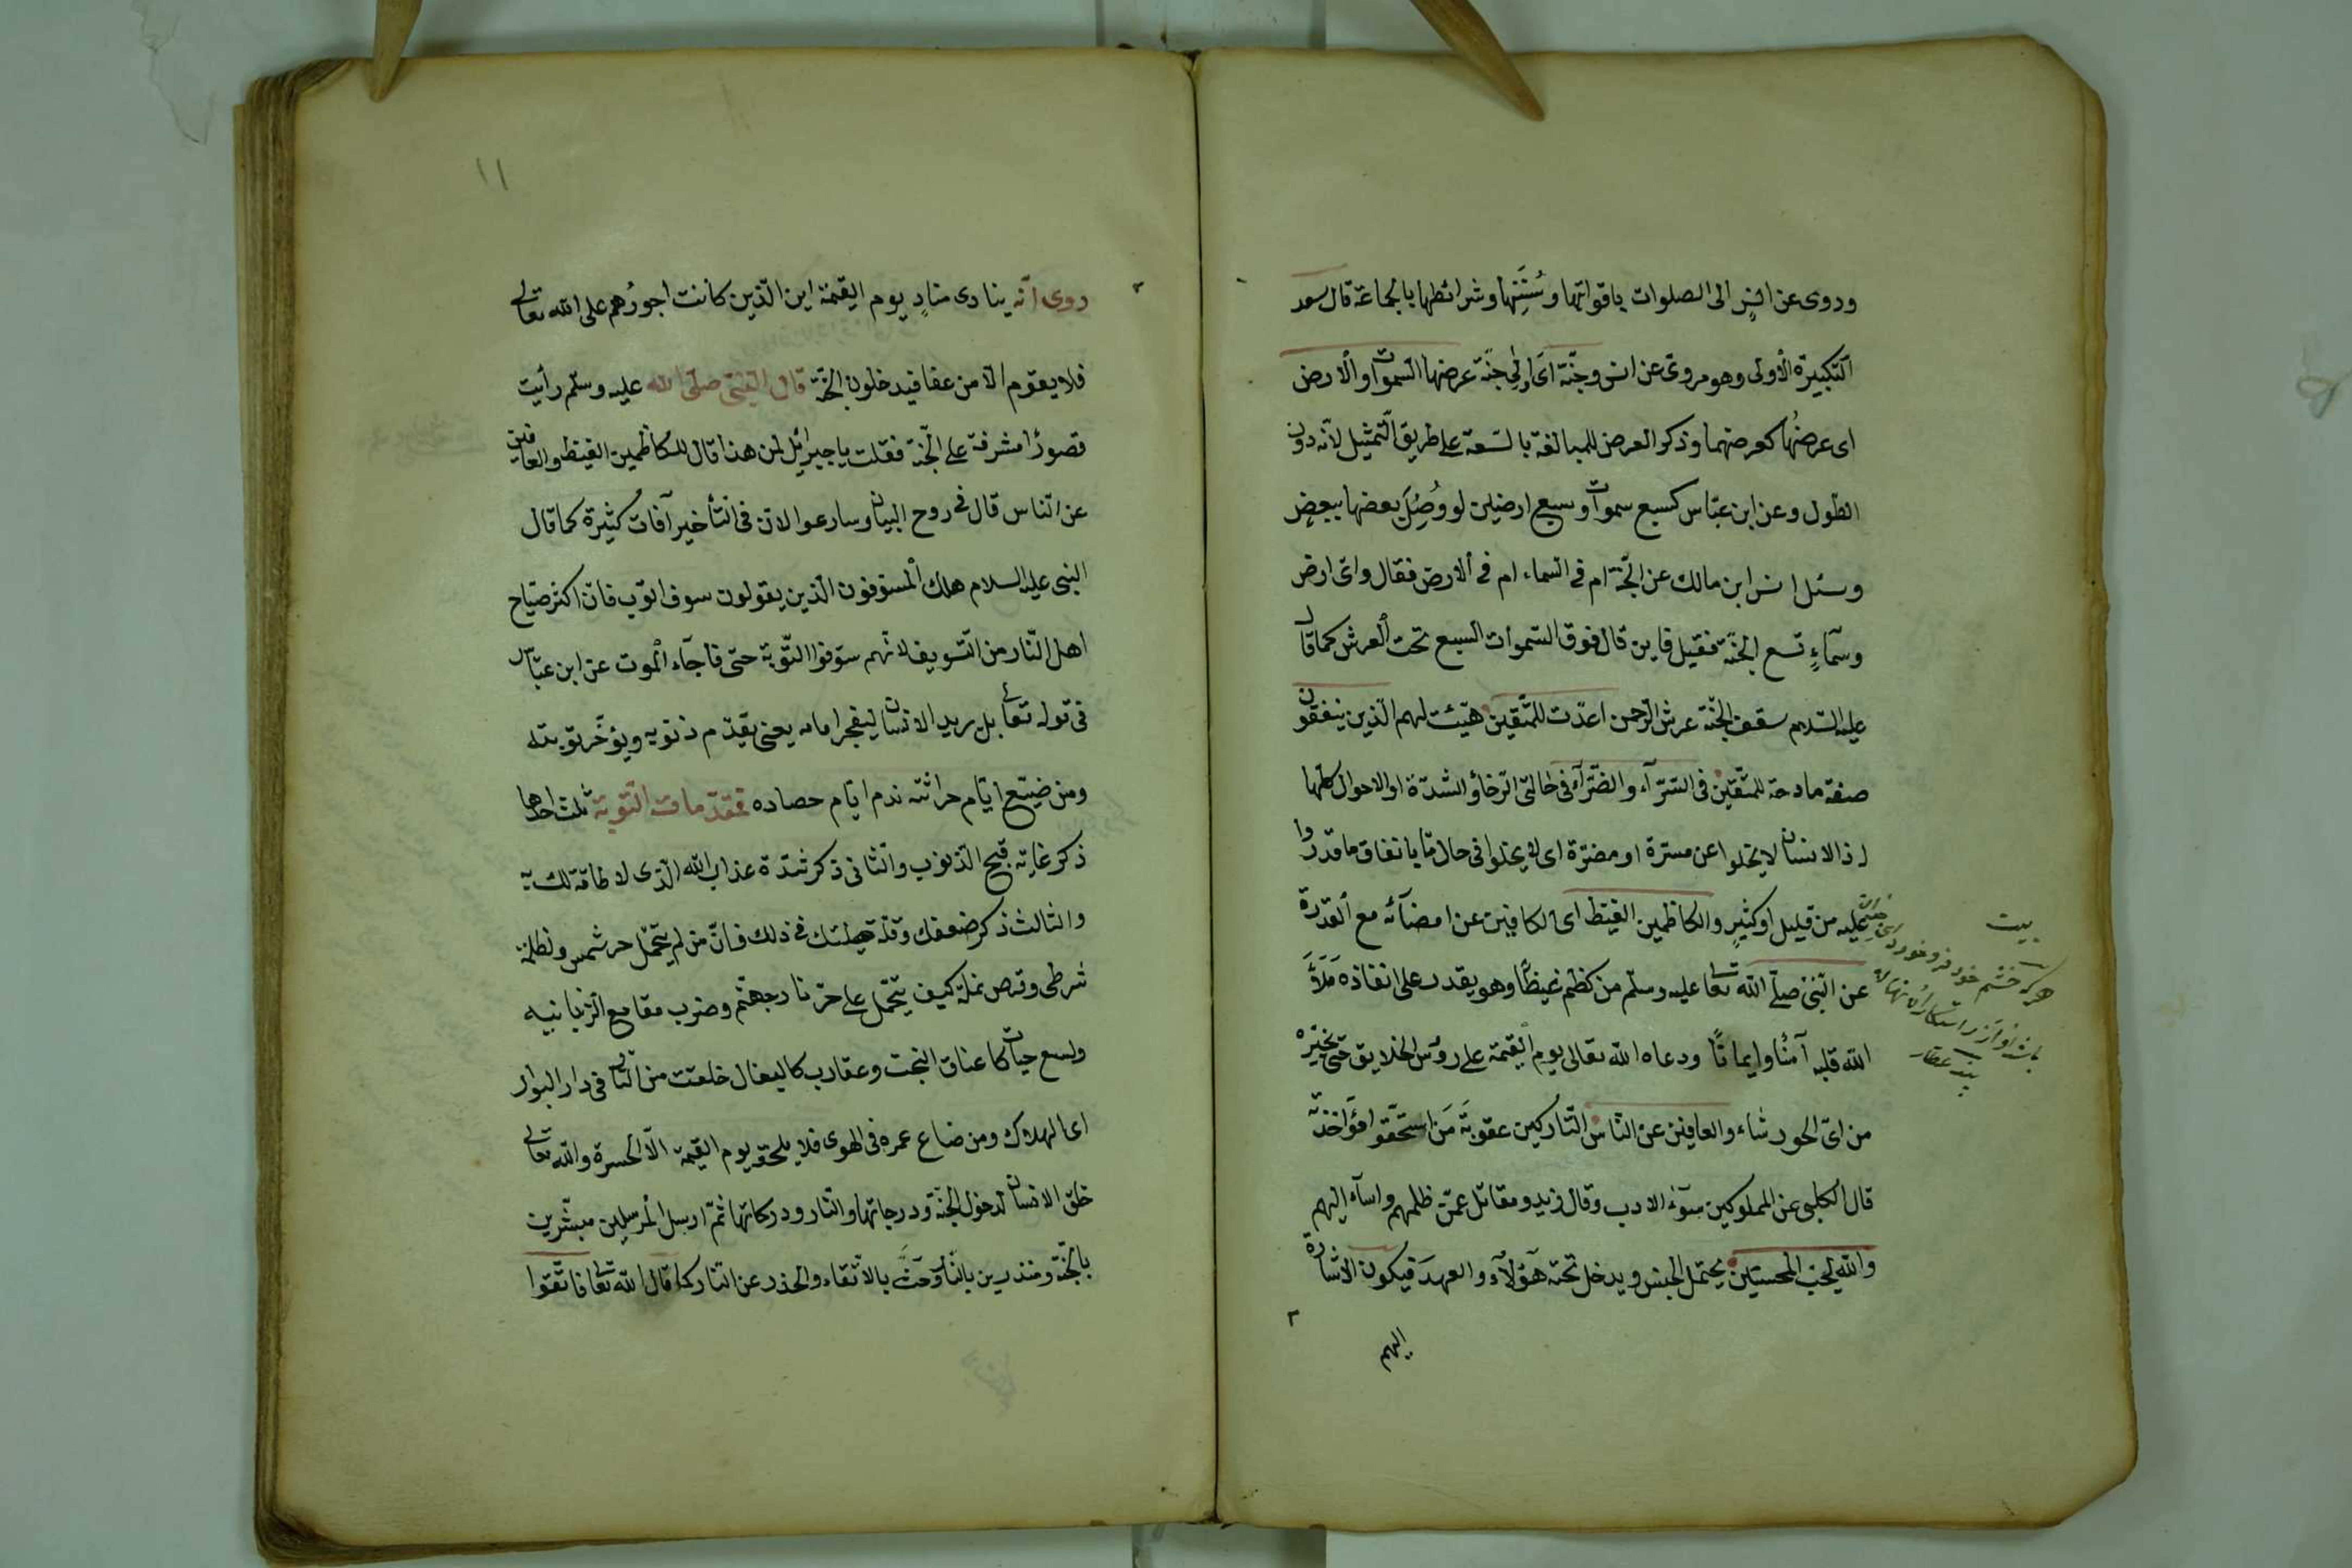 وروى عن انسٍ الى الصلوات باقواتها وسُنَنِها وشرائطها بالجماعة قال سعد
التكبيرة الأولى وهو مروى عن انس وجنّة اى الى جنّة عرضها السموات والارض
اى عرضُها كعرضهما وذكر العرض للمبالغة بالسّعة على طريق التّمثيل لأنّه دون
الطّول وعن ابن عبّاس كسبع سموات وسبع ارضين لو وُصِلَ بعضها ببعضٍ
وسئل انس ابن مالك عن الجنّة ام فى السّماء ام فى الارض فقال واىّ ارض
وسمآءٍ تسع الجنّة فقيل فاين قال فوق السّموات السبع تحت العرش كما قال
عليه السّلام سقف الجنّة عرش الرّحمن اعدّت للمتّقين هيّئت لهم الّذين ينفقون
صفة مادحة للمتّقين فى السّرّآء والضّرّآء فى حالتى الرّخآء والشدّة او الاحوال كلّها
اذ الانسان لا يخلوا عن مسرّة او مضرّة اى لا يخلوا فى حال مّا بانفاق ما قدروا
عليه من قليل او كثيرٍ والكاظمين الغيظ اى الكافين عن امضآئه مع القدرة
عن النّبىّ صلّى الله تعالى عليه وسلّم من كظم غيظًا وهو يقدر على انفاذه مَلَأَ
الله قلبه آمنًا وايمانًا ودعاه الله تعالى يوم القيمة على رؤس الخلايق حتّى يخيّره
من اىّ الحور شاء والعافين عن النّاس التّاركين عقوبَة مَن استحقّوا مؤاخذة
قال الكلبى عن المملوكين سوٓء الادب وقال زيد ومقاتل عمّن ظلمهم واسآء اليهم
والله يحبّ المحسنين يحتمل الجنس ويدخل تحته هٓؤلآء والعهدَ فيكون الاشارة
اليهم
بيت
هركه خشم خود فرو خورد اى
باشد او از راستكاران
پند عطار
١١
روى انّه ينادى منادٍ يوم القيمة اين الّذين كانت اجورُهم على الله تعالى
فلا يقوم الّا من عفا فيدخلون الجنّة قال النبىّ صلّى الله عليه وسلّم رأيت
قصورًا مشرفة على الجنّة فقلت يا جبرائيل لمن هذا قال للكاظمين الغيظ والعافين
عن النّاس قال فى روح البيان وسارعوا لانّ فى التأخير آفات كثيرة كما قال
النبى عليه السلام هلك المسوّفون الّذين يقولون سوف اتوب فانّ اكثر صياح
اهل النّار من التّسويف لانّهم سوّفوا التّوبة حتى فاجآء الموت عن ابن عبّاس
فى قوله تعالى بل يريد الانسان ليفجر امامه يعنى يقدّم ذنوبه ويؤخّر توبته
ومن ضيّع ايّام حراثته ندم ايّام حصاده فمقدّمات التّوبة ثلث احدها
ذكر غاية قبح الذنوب والثانى ذكر شدّة عذاب الله الّذى لا طاقة لك به
والثالث ذكر ضعفك وقلّة حيلتك فى ذلك فانّ من لم يتحمّل حرّ شمس ولطمة
شرطى وقرص نملة كيف يتحمّل على حرّ نار جهنّم وضرب مقامع الزّبانيه
ولسع حيات كاعناق البخت وعقارب كالبغال خلقت من النّار فى دار البوار
اى الهلاك ومن ضاع عمره فى الهوى فلا يلحقه يوم القيمة الّا الحسرة والله تعالى
خلق الانسان لدخول الجنّة ودرجاتها والنّار ودركاتها ثمّ ارسل المرسلين مبشّرين
بالجنّة ومنذرين بالنّار وحَثَّ بالاتّقاء والحذر عن النّار كما قال الله تعالى فاتّقوا